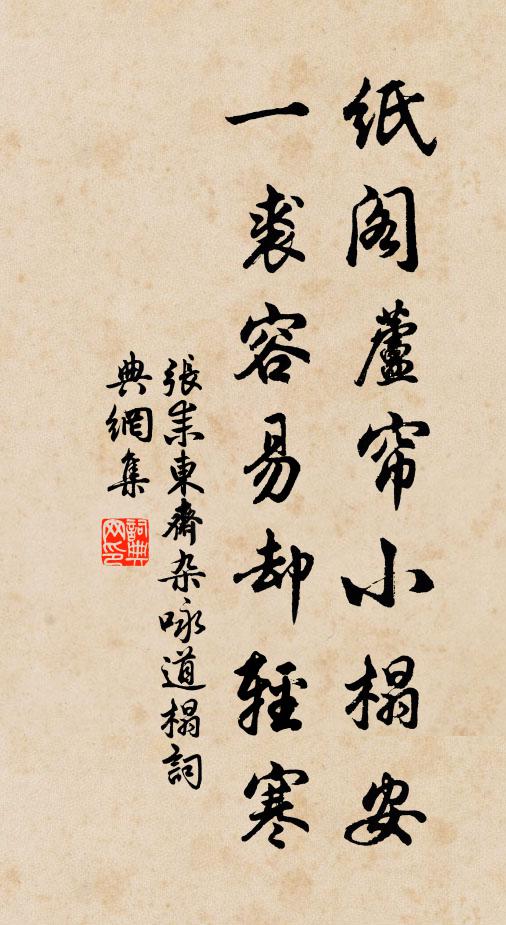 紙阁蘆帘小榻安
一裘容易却輕寒
張耒東齋杂咏道榻詞
典網集
詞典网印